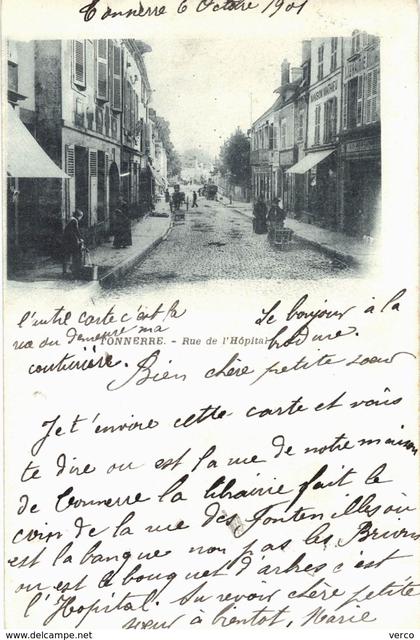 Tonnerre 6 Octobre 1901
MAISON MATHIEU
l'autre carte c'est la
rue ou demeure ma
couturière.
Le bonjour à la
TONNERRE. - Rue de l'Hôpital
Bien chère petite soeur
Je t'envoie cette carte et vais
te dire ou est la rue de notre maison
de Tonnerre la librairie fait le
coin de la rue des Fontenilles ou
est la banque non pas les
ou est le bouquet d'arbres c'est
l'Hopital. Au revoir chère petite
soeur à bientot, Marie
www.delcampe.net
veco